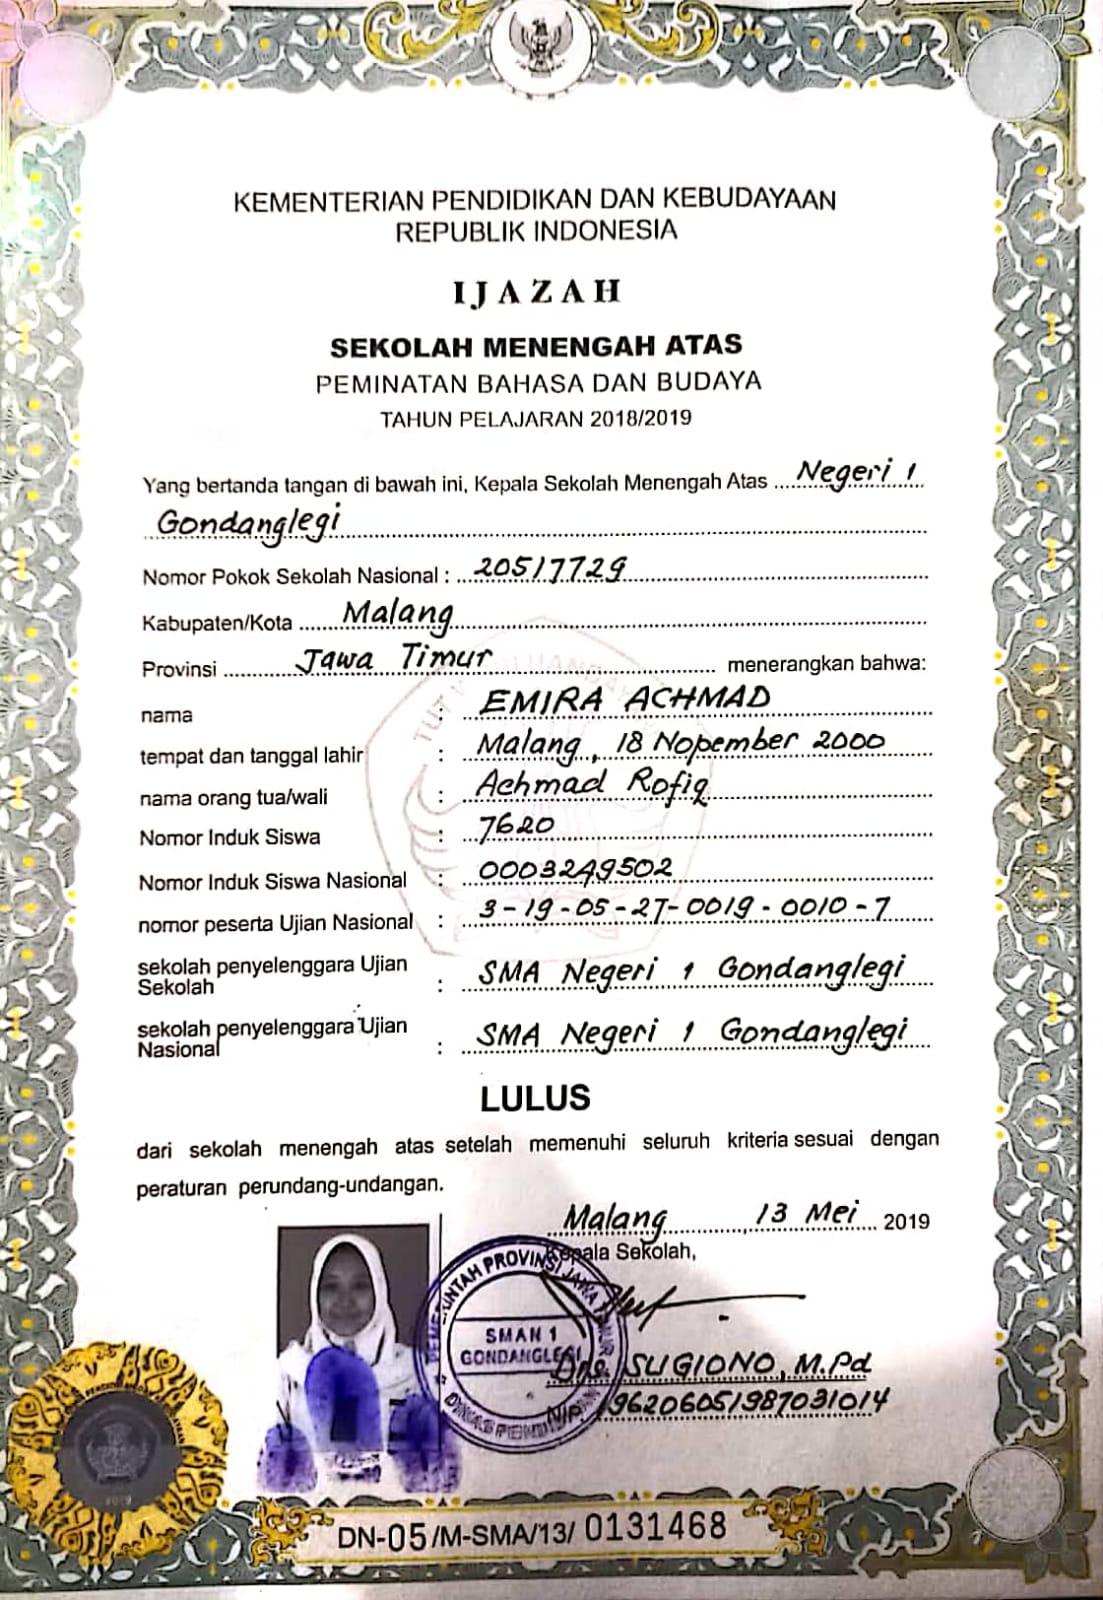 KEMENTERIAN PENDIDIKAN DAN KEBUDAYAAN
REPUBLIK INDONESIA
IJAZAH
SEKOLAH MENENGAH ATAS
PEMINATAN BAHASA DAN BUDAYA
TAHUN PELAJARAN 2018/2019
Yang bertanda tangan di bawah ini, Kepala Sekolah Menengah Atas Negeri 1
Gondanglegi
Nomor Pokok Sekolah Nasional : 20517729
Kabupaten/Kota Malang
Provinsi Jawa Timur menerangkan bahwa:
nama : EMIRA ACHMAD
tempat dan tanggal lahir : Malang, 18 Nopember 2000
nama orang tua/wali : Achmad Rofiq
Nomor Induk Siswa : 7620
Nomor Induk Siswa Nasional : 0003249502
nomor peserta Ujian Nasional : 3-19-05-27-0019-0010-7
sekolah penyelenggara Ujian
Sekolah : SMA Negeri 1 Gondanglegi
sekolah penyelenggara Ujian
Nasional : SMA Negeri 1 Gondanglegi
LULUS
dari sekolah menengah atas setelah memenuhi seluruh kriteria sesuai dengan
peraturan perundang-undangan.
Malang, 13 Mei 2019
Kepala Sekolah,
SMAN 1
GONDANGLEGI
Drs. SUGIONO, M.Pd
NIP. 196206051987031014
2019
DN-05/M-SMA/13/ 0131468